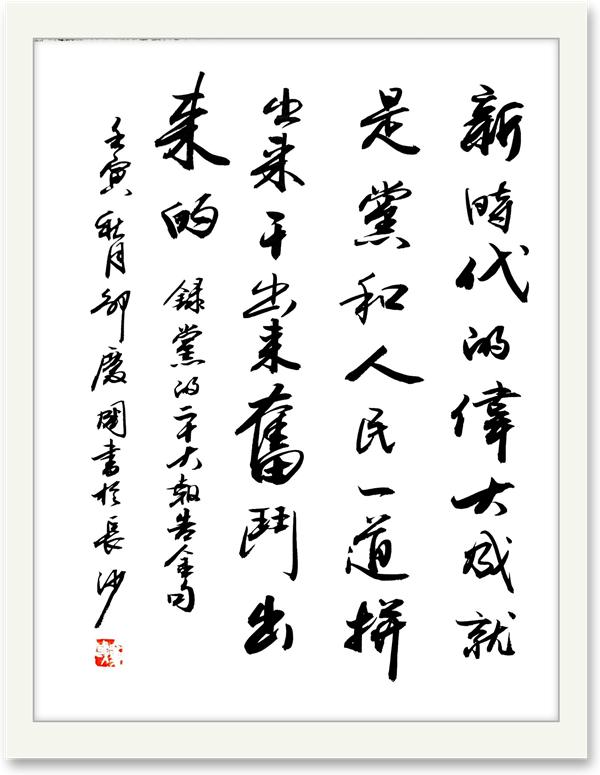 新時代的偉大成就
是黨和人民一道拼
出来干出来奮鬥出
来的 錄黨的二十大報告金句
壬寅秋月 慶國書於長沙